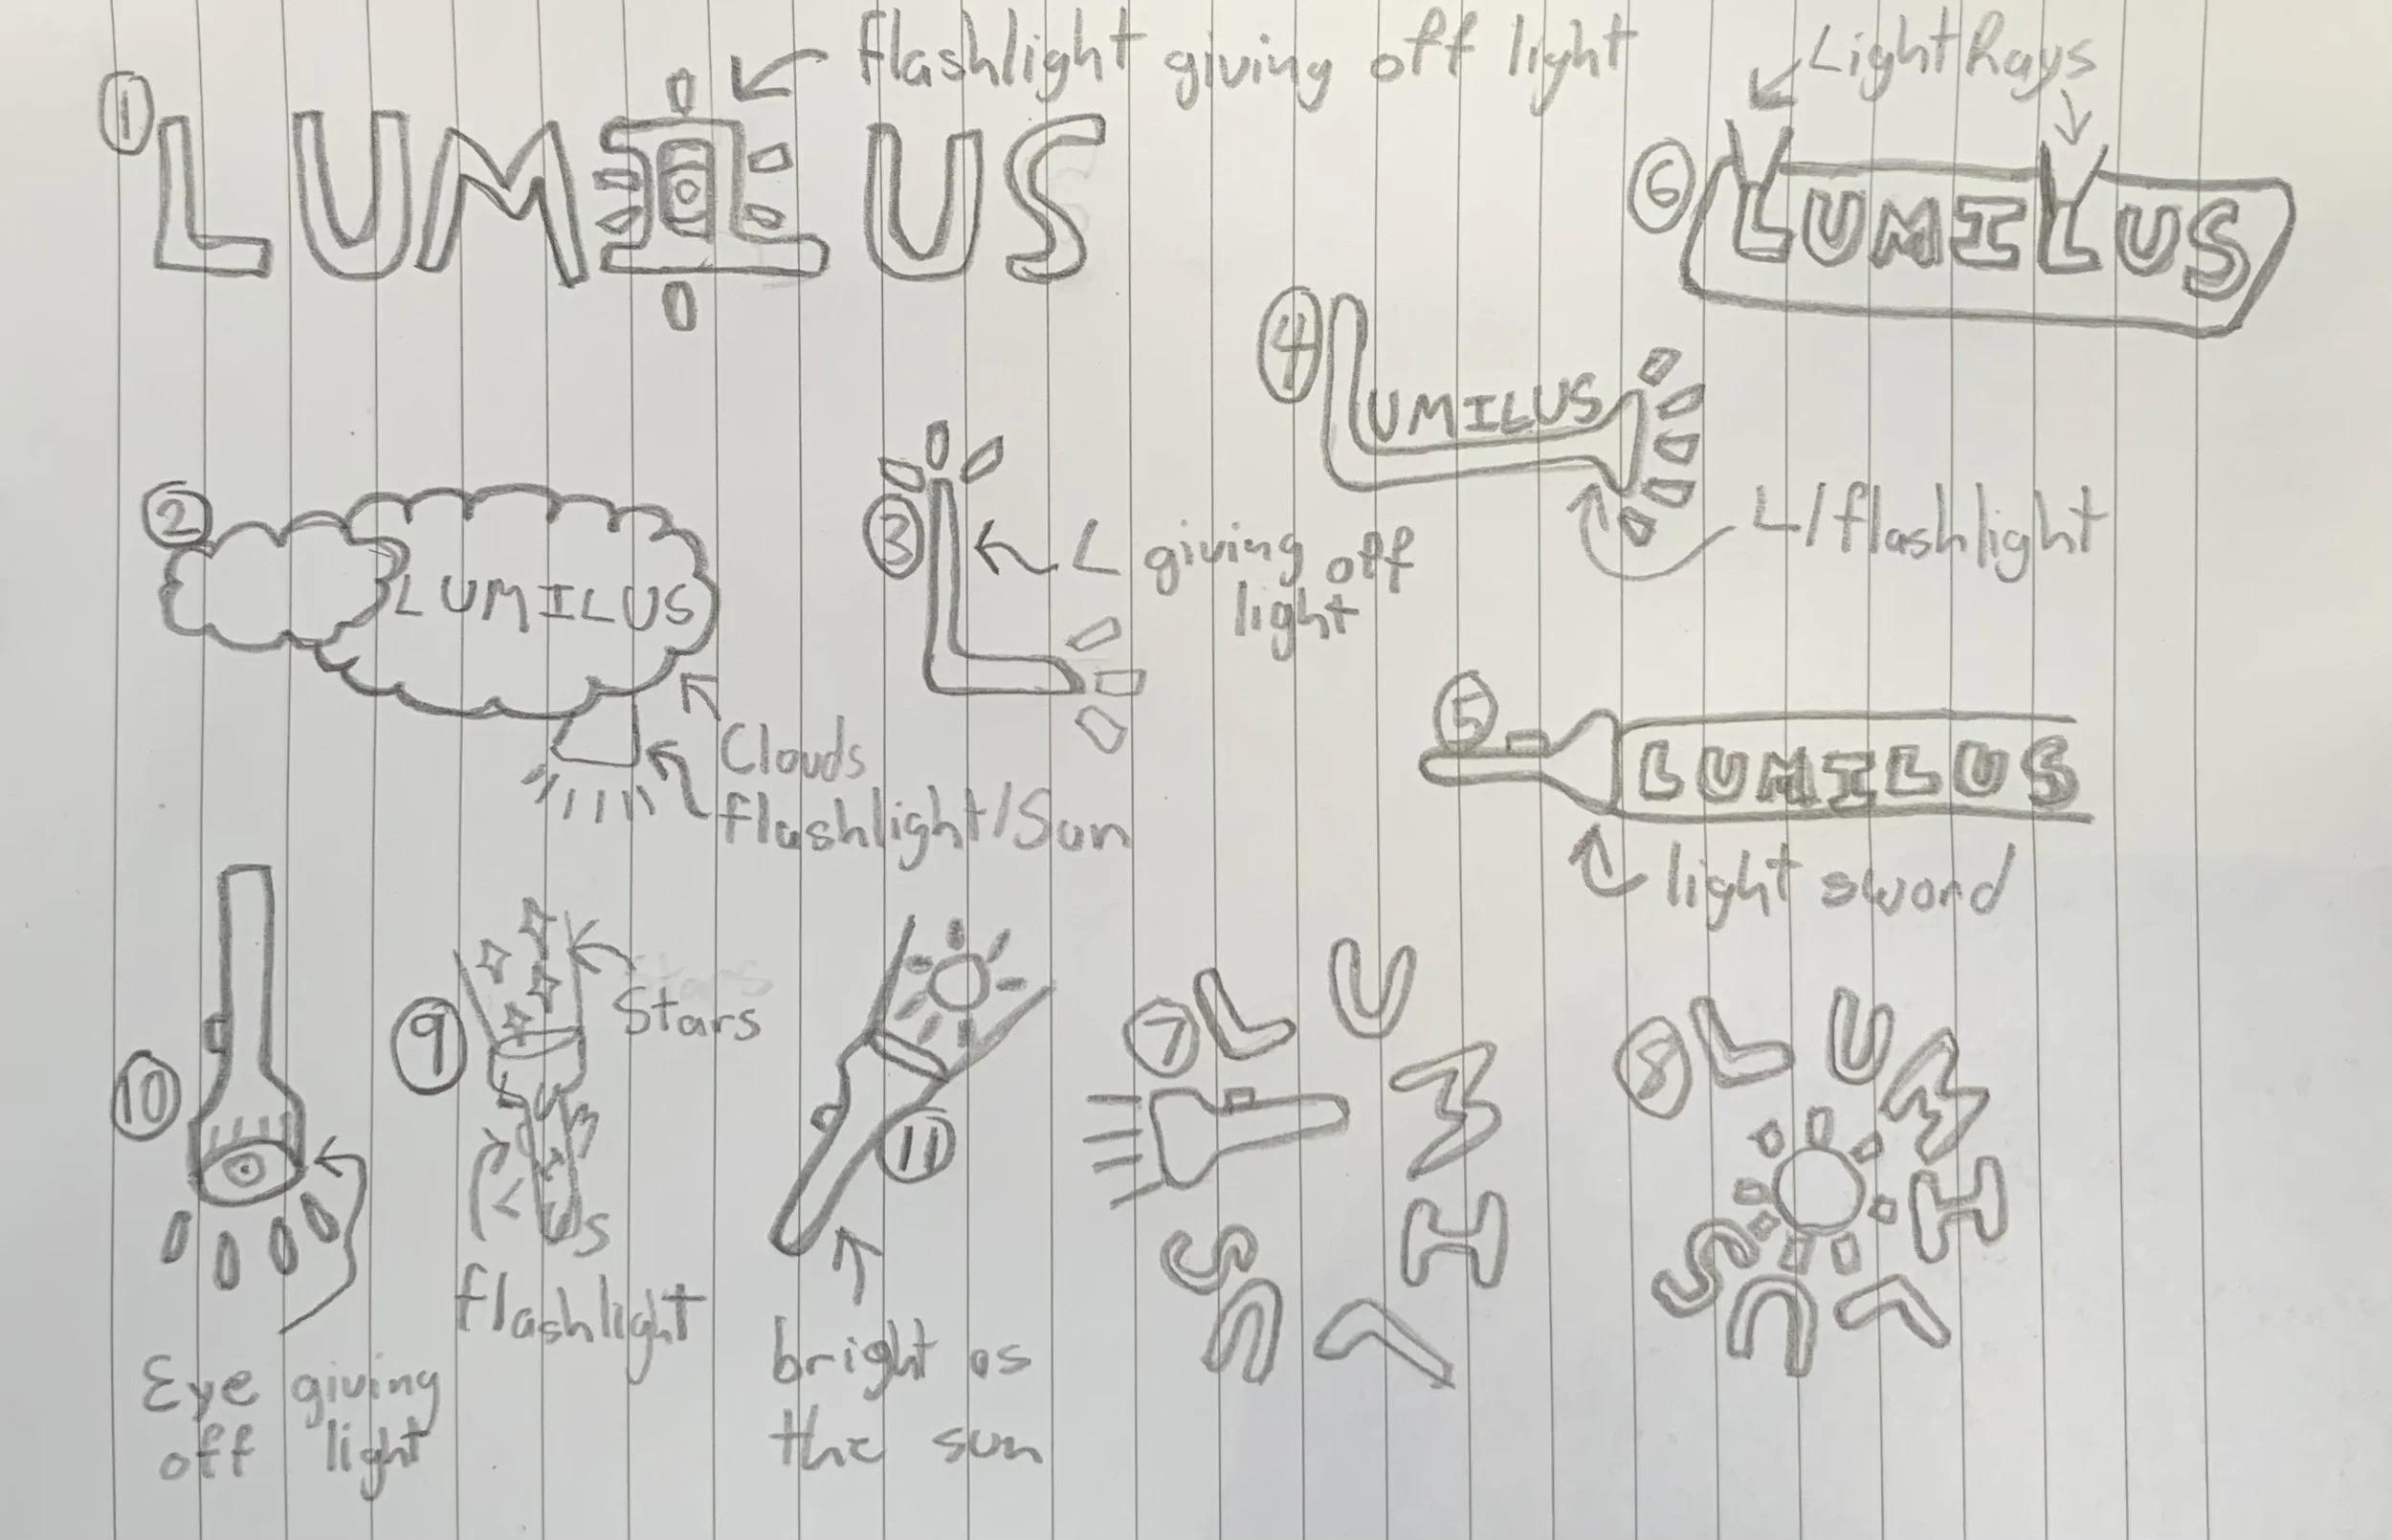 1
LUMILUS
flashlight giving off light
6
Light Rays
LUMILUS
4
LUMILUS
L/flashlight
2
LUMILUS
Clouds
flashlight/Sun
3
L giving off
light
5
LUMILUS
light sword
10
Eye giving
off light
9
Stars
LUMILUS
flashlight
11
bright as
the sun
7
LUMILUS
8
LUMILUS